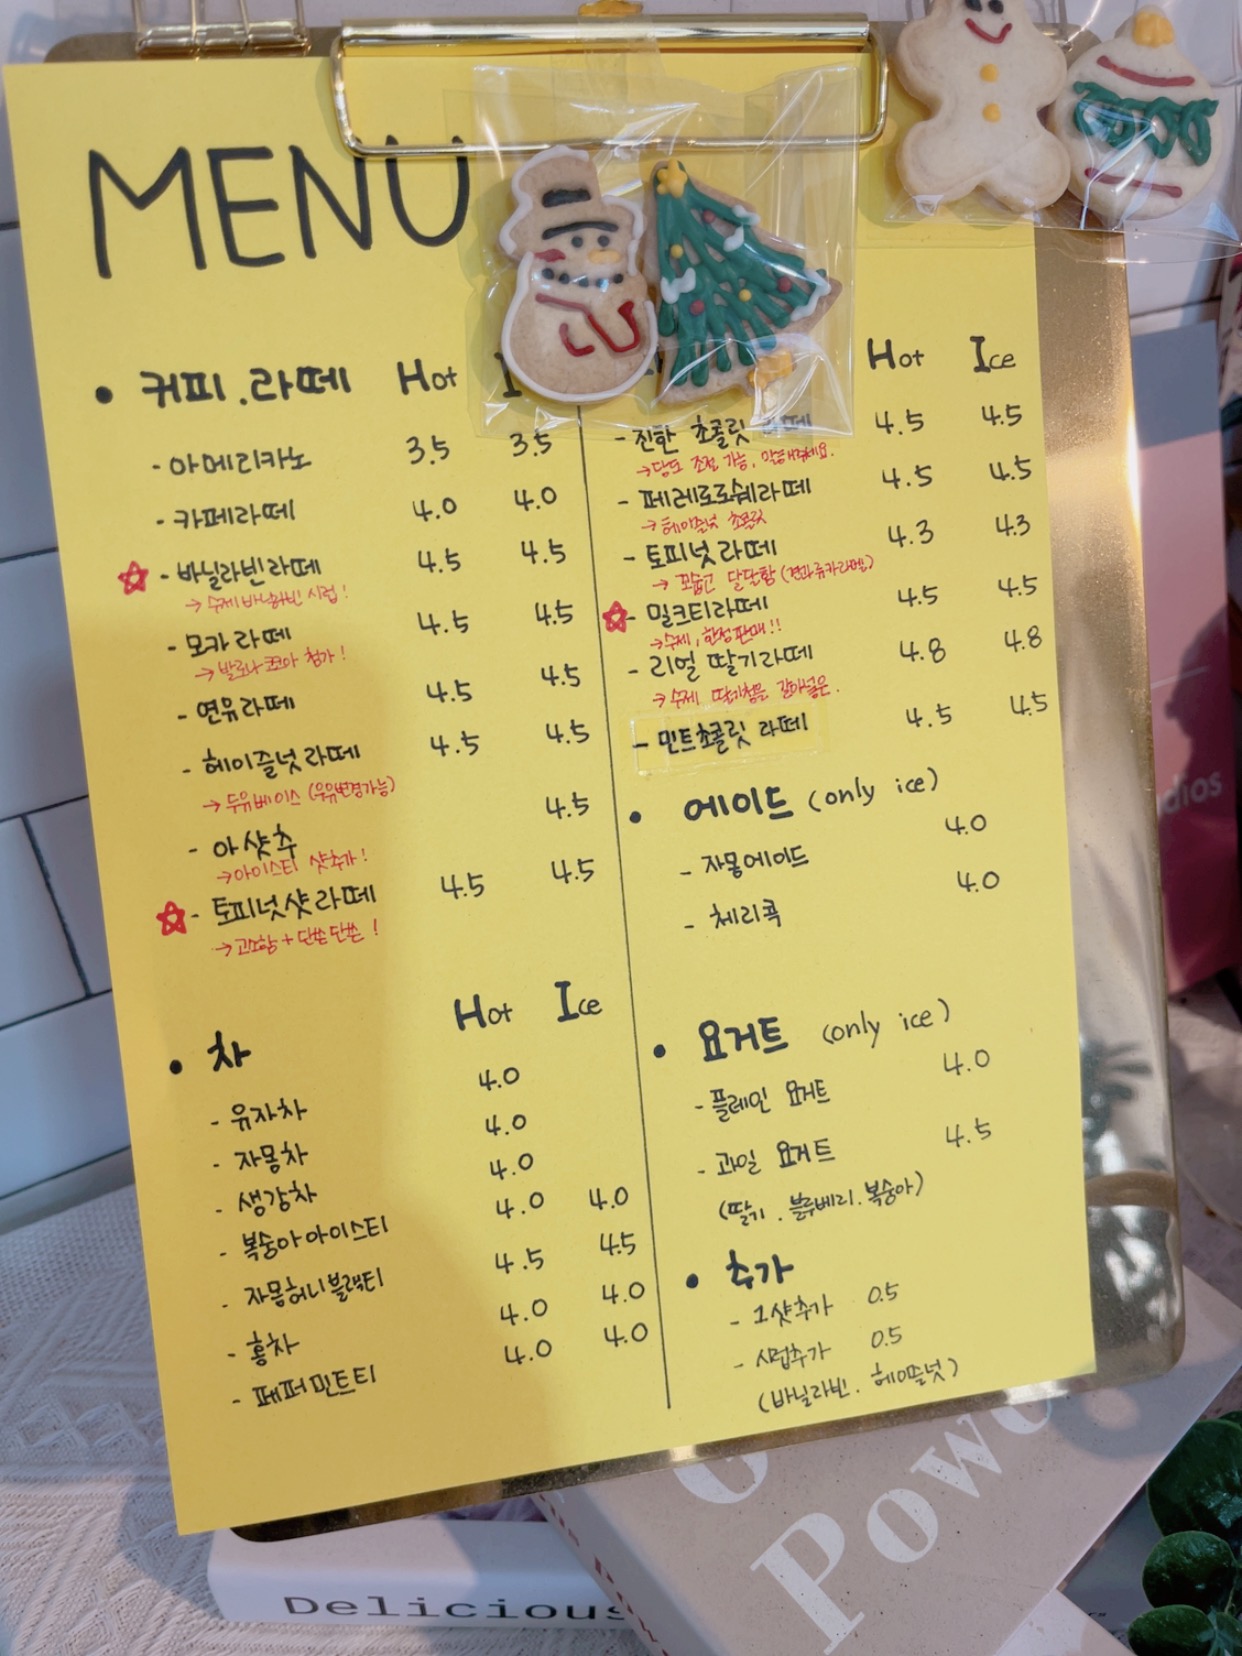 MENU
• 커피.라떼 Hot
- 아메리카노 3.5 3.5
- 카페라떼 4.0 4.0
- 바닐라빈라떼 4.5 4.5
→ 수제바닐라빈 시럽!
- 모카라떼 4.5 4.5
→ 발로나 코코아 첨가!
- 연유라떼 4.5 4.5
- 헤이즐넛라떼 4.5 4.5
→ 두유베이스 (우유변경가능)
- 아샷추 4.5
→ 아이스티 샷추가!
- 토피넛샷라떼 4.5 4.5
→ 고소함+단쓴단쓴!
• 차 Hot Ice
- 유자차 4.0
- 자몽차 4.0
- 생강차 4.0
- 복숭아아이스티 4.0 4.0
- 자몽허니블랙티 4.5 4.5
- 홍차 4.0 4.0
- 페퍼민트티 4.0 4.0
Hot Ice
- 진한 초콜릿 라떼 4.5 4.5
→ 당도 조절 가능, 말씀해주세요.
- 페레로로쉐라떼 4.5 4.5
→ 헤이즐넛 초콜릿
- 토피넛라떼 4.3 4.3
→ 꼬숩고 달달함 (견과류카라멜)
- 밀크티라떼 4.5 4.5
→ 수제, 한정판매!!
- 리얼 딸기라떼 4.8 4.8
→ 수제 딸기청을 갈아넣은.
- 민트초콜릿 라떼 4.5 4.5
• 에이드 (only ice)
- 자몽에이드 4.0
- 체리콕 4.0
• 요거트 (only ice)
- 플레인 요거트 4.0
- 과일 요거트 4.5
(딸기.블루베리.복숭아)
• 추가
- 1샷추가 0.5
- 시럽추가 0.5
(바닐라빈.헤이즐넛)
Powe
Delicious